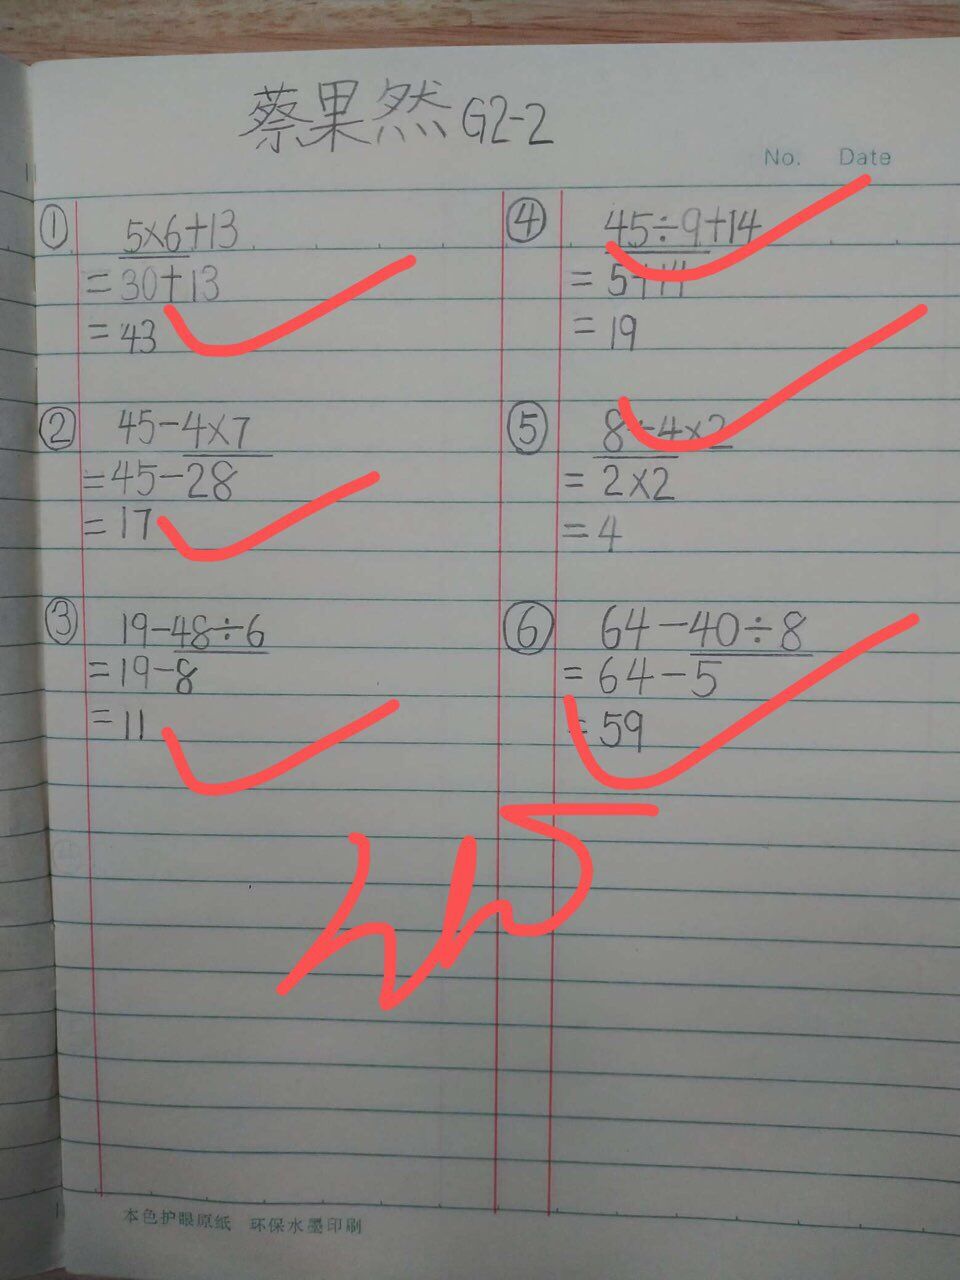 蔡果然 G2-2
No. Date
① 5×6+13
=30+13
=43
② 45-4×7
=45-28
=17
③ 19-48÷6
=19-8
=11
④ 45÷9+14
=5+14
=19
⑤ 8÷4×2
=2×2
=4
⑥ 64-40÷8
=64-5
=59
本色护眼原纸 环保水墨印刷